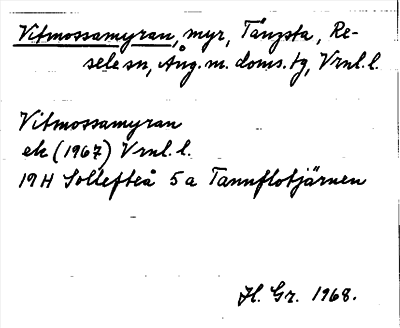 Vitmossamyran, myr, Tångsta, Re-
sele sn, Ång. m. doms. tg, Vrnl. l.
Vitmossamyran
ek (1967) Vrnl. l.
19H Sollefteå 5a Tannflotjärnen
H. Gr. 1968.